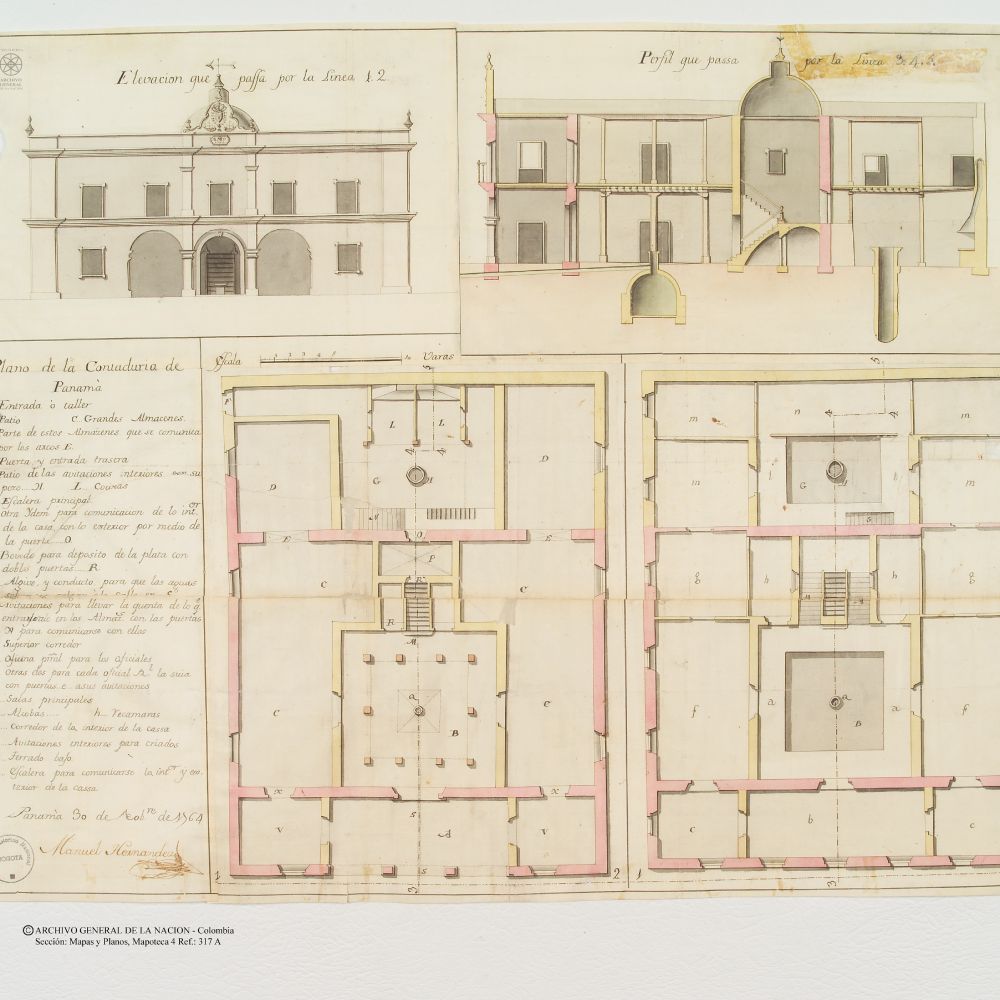 Elevacion que passa por la Linea 1.2.
Perfil que passa por la Linea 3.4.5.
ARCHIVO
GENERAL
Plano de la Contaduria de
Panamà
Entrada ò taller
Patio C Grandes Almacenes.
Parte de estos Almazenes que se comunica
por los arcos E.
Puerta y entrada trasera
Patio de las avitaciones interiores con su
pozo H L Couvas
Escalera principal
Otra Ydem para comunicacion de lo int.or
de la casa con lo exterior por medio de
la puerta O.
Bovedo para deposito de la plata con
dobles puertas R
Algive, y conducto para que las aguas
Avitaciones para llevar la quenta de lo q.
entra en los Almaz. con las puertas
X para comunicarse con ellos
Superior corredor
Oficina pral para los oficiales
Otras dos para cada oficial R.l la suia
con puertas e asus avitaciones
Salas principales
Alcobas h Recamaras
Corredor de la interior de la cassa
Avitaciones interiores para criados
Terrado bajo
Escalera para comunicarse la int.r y ex-
terior de la cassa.
Panamà 30 de Nob.re de 1764
Manuel Hernandez
Escala 1 2 3 4 5 10 Varas
5
F
L L
D G H D
4 4
N
E O E
P
C R C
R
M
a
C B C
X X
V s A V
s
1 3 2
5
m n m
4 4
m G H m
g h h g
f a a a f
B
c b c
1 3
© ARCHIVO GENERAL DE LA NACION - Colombia
Sección: Mapas y Planos, Mapoteca 4 Ref.: 317 A